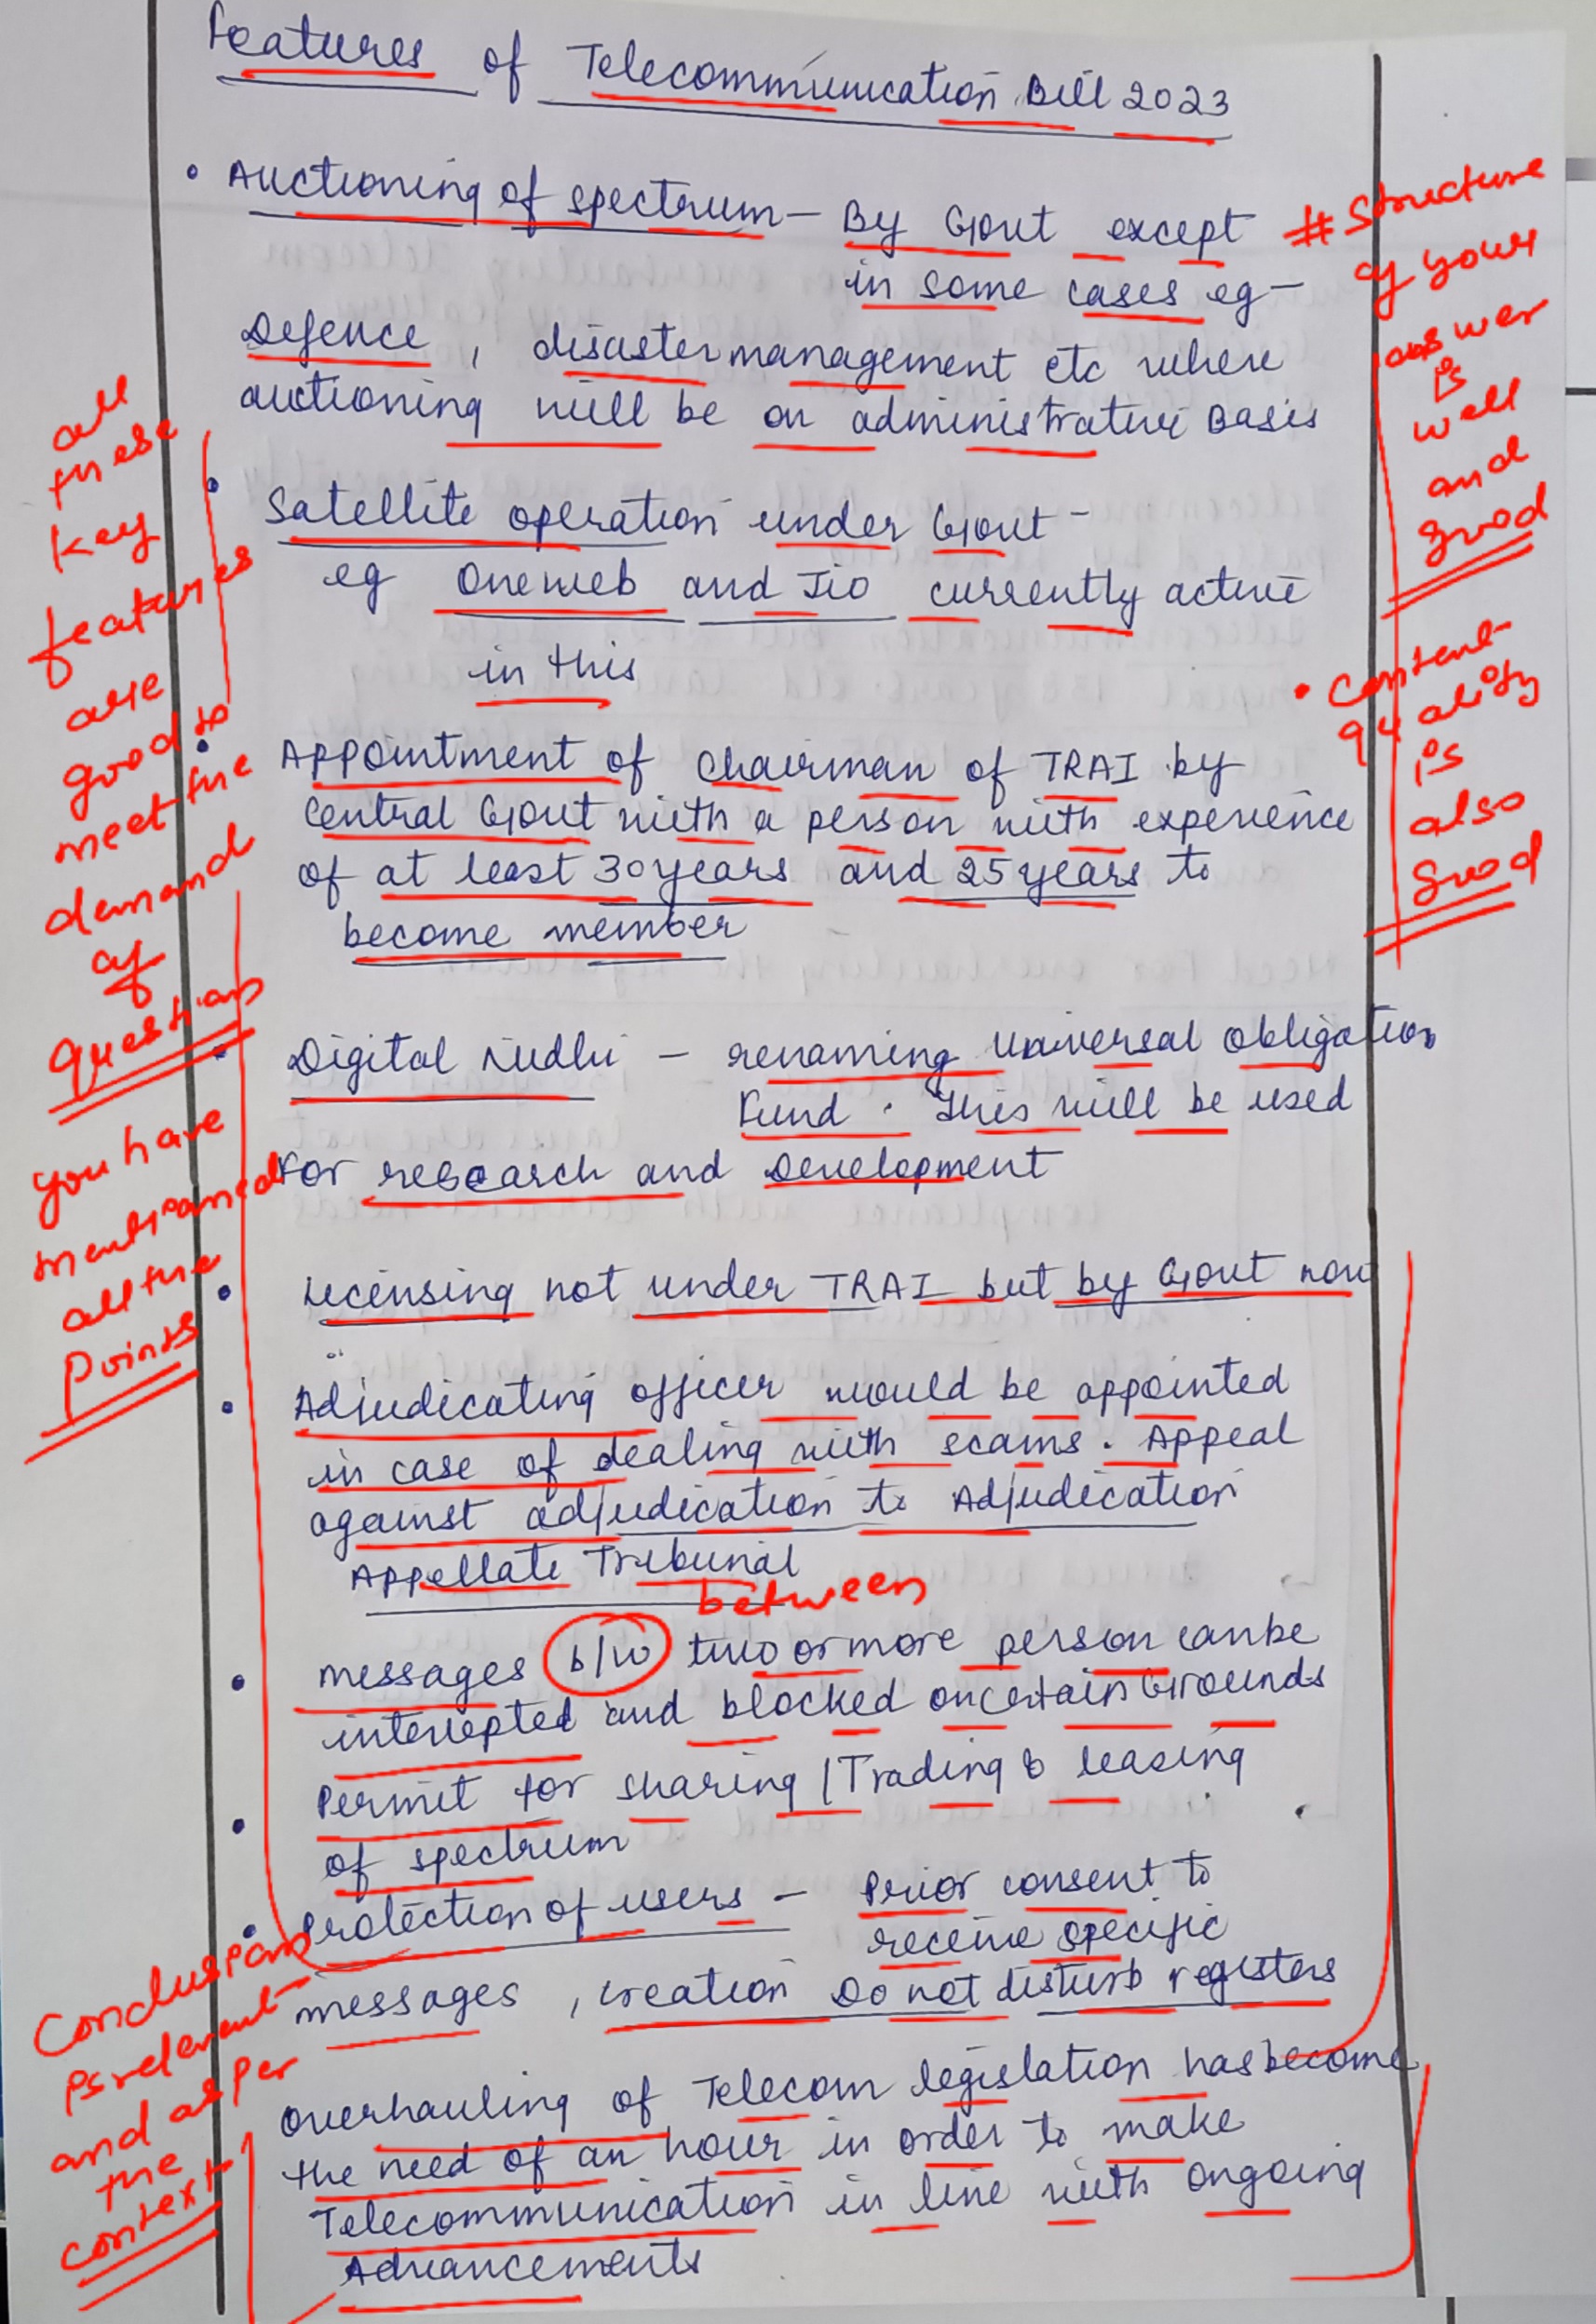 Features of Telecommunication Bill 2023
• Auctioning of spectrum – By Govt except
in some cases eg –
Defence, disaster management etc where
auctioning will be on administrative Basis
• Satellite operation under Govt –
eg Oneweb and Jio currently active
in this
• Appointment of chairman of TRAI by
Central Govt with a person with experience
of at least 30 years and 25 years to
become member
• Digital Nidhi – renaming Universal Obligation
Fund. This will be used
For research and Development
• Licensing not under TRAI but by Govt now
• Adjudicating officer would be appointed
in case of dealing with scams. Appeal
against adjudication to Adjudication
Appellate Tribunal
between
• messages b/w two or more person can be
intercepted and blocked on certain Grounds
• Permit for sharing / Trading & leasing
of spectrum
• Protection of users – Prior consent to
receive specific
messages, creation Do not disturb registers
Overhauling of Telecom legislation has become
the need of an hour in order to make
Telecommunication in line with ongoing
Advancements
# Structure
of your
answer
is
well
and
good
• Content
quality
is
also
good
all
these
key
features
are
good to
meet the
demand
of
questions
you have
mentioned
all the
points
Conclusion
is relevant
and as per
the
context